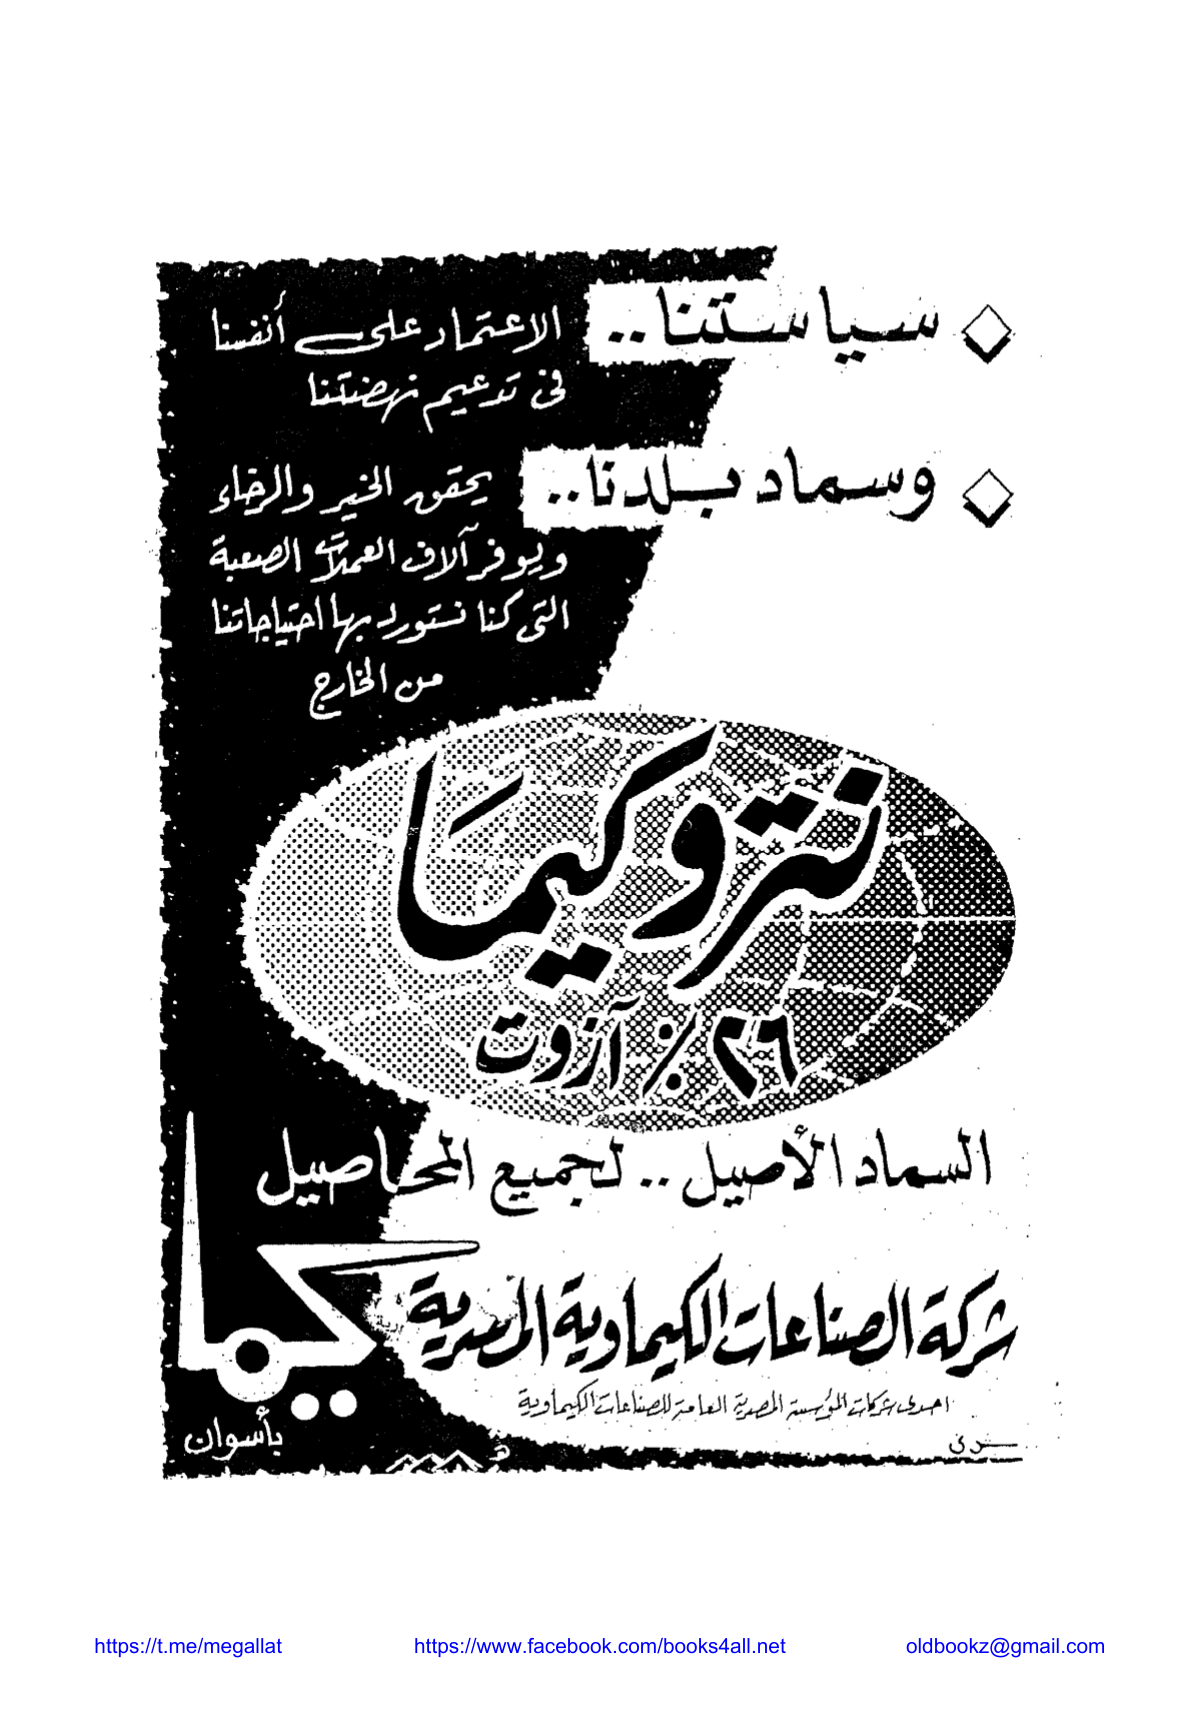 سياستنا.. الاعتماد على أنفسنا
فى تدعيم نهضتنا
وسماد بلدنا.. يحقق الخير والرخاء
ويوفر آلاف العملات الصعبة
التى كنا نستورد بها احتياجاتنا
من الخارج
نتروكيما
٢٦٪ آزوت
السماد الأصيل.. لجميع المحاصيل
شركة الصناعات الكيماوية المصرية
كيما
احدى شركات المؤسسة المصرية العامة للصناعات الكيماوية
بأسوان
https://t.me/megallat
https://www.facebook.com/books4all.net
oldbookz@gmail.com